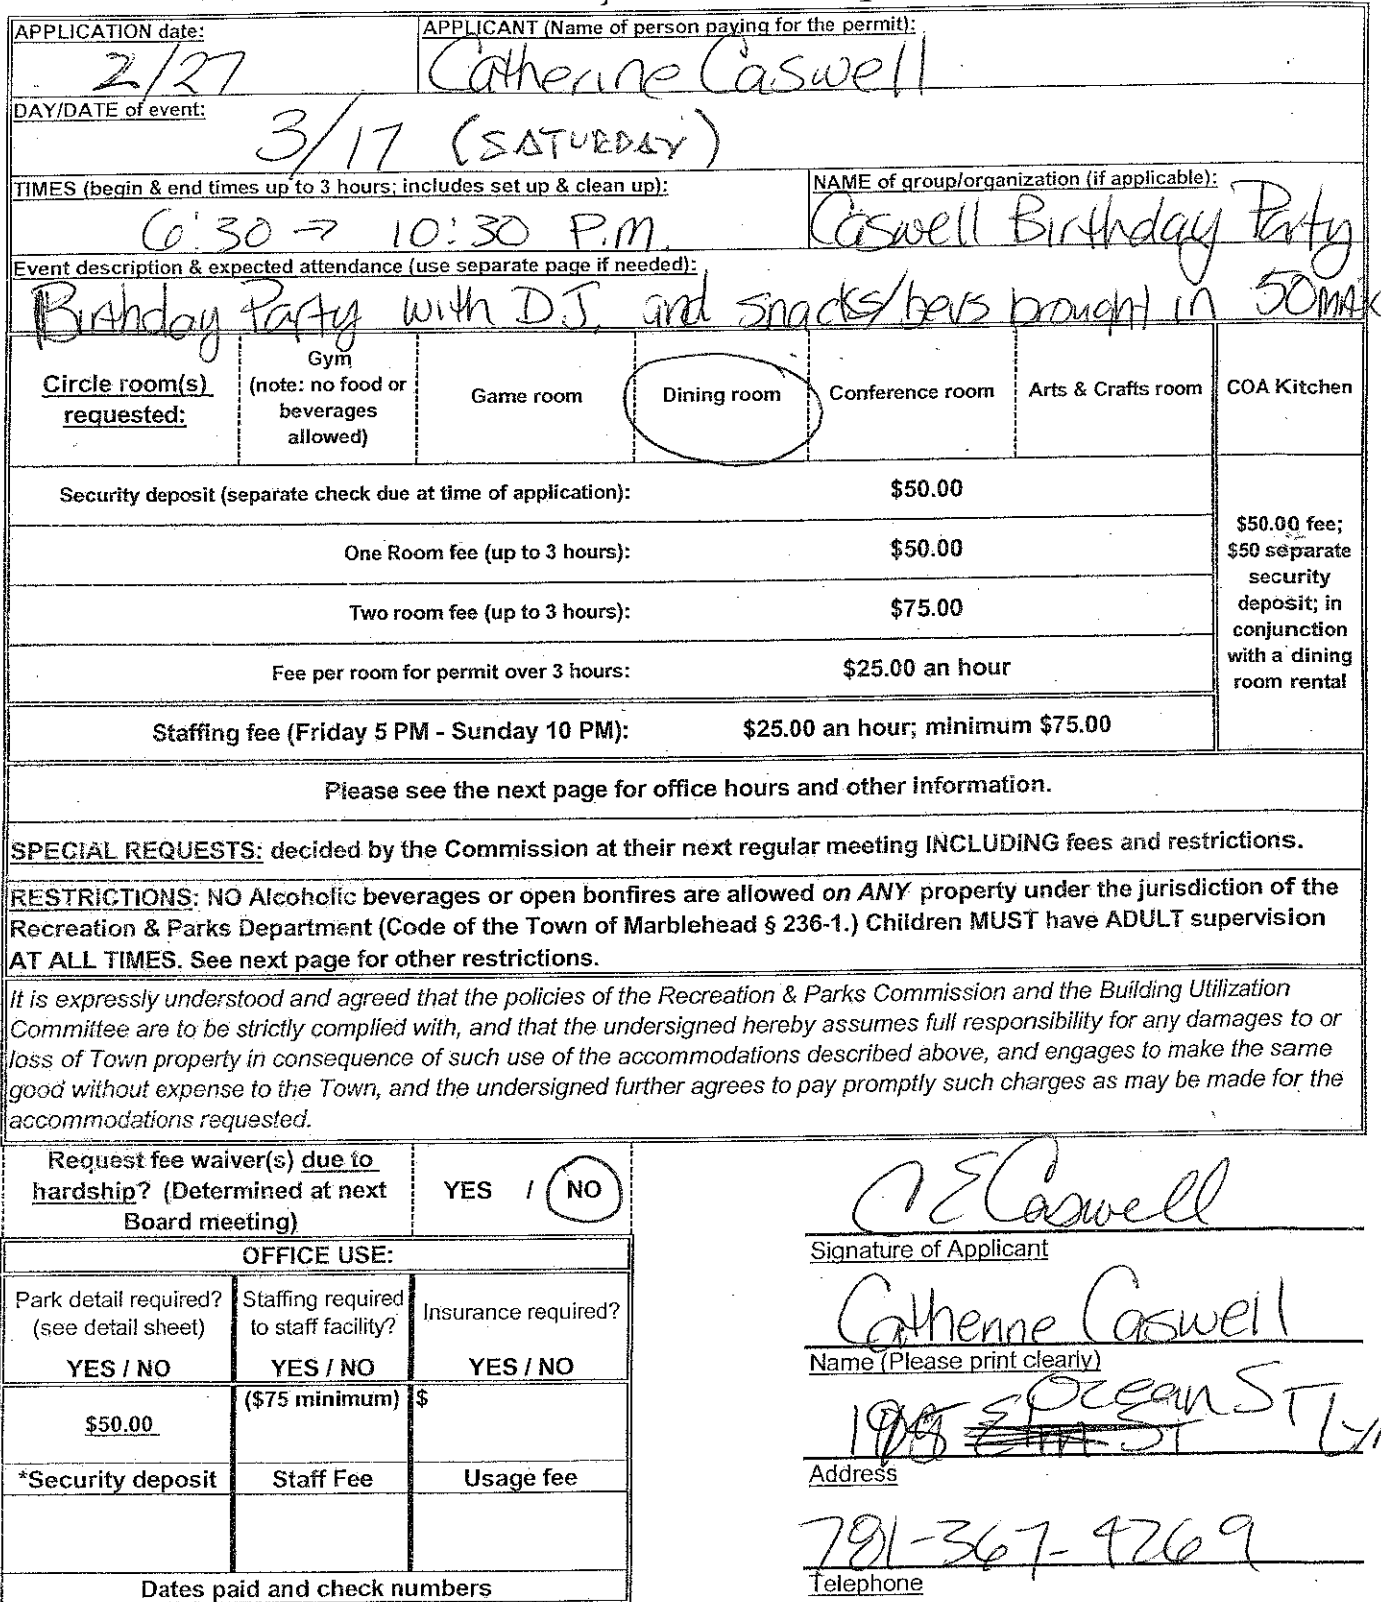 APPLICATION date:
APPLICANT (Name of person paying for the permit):
2/27
Catherine Caswell
DAY/DATE of event:
3/17 (SATURDAY)
TIMES (begin & end times up to 3 hours; includes set up & clean up):
NAME of group/organization (if applicable):
6:30 → 10:30 P.M.
Caswell Birthday Party
Event description & expected attendance (use separate page if needed):
Birthday Party with DJ, and snacks/bevs brought in 50 MAX
Circle room(s)
requested:
Gym
(note: no food or
beverages
allowed)
Game room
Dining room
Conference room
Arts & Crafts room
COA Kitchen
Security deposit (separate check due at time of application):
$50.00
One Room fee (up to 3 hours):
$50.00
Two room fee (up to 3 hours):
$75.00
Fee per room for permit over 3 hours:
$25.00 an hour
Staffing fee (Friday 5 PM - Sunday 10 PM):
$25.00 an hour; minimum $75.00
$50.00 fee;
$50 separate
security
deposit; in
conjunction
with a dining
room rental
Please see the next page for office hours and other information.
SPECIAL REQUESTS: decided by the Commission at their next regular meeting INCLUDING fees and restrictions.
RESTRICTIONS: NO Alcoholic beverages or open bonfires are allowed on ANY property under the jurisdiction of the
Recreation & Parks Department (Code of the Town of Marblehead § 236-1.) Children MUST have ADULT supervision
AT ALL TIMES. See next page for other restrictions.
It is expressly understood and agreed that the policies of the Recreation & Parks Commission and the Building Utilization
Committee are to be strictly complied with, and that the undersigned hereby assumes full responsibility for any damages to or
loss of Town property in consequence of such use of the accommodations described above, and engages to make the same
good without expense to the Town, and the undersigned further agrees to pay promptly such charges as may be made for the
accommodations requested.
Request fee waiver(s) due to
hardship? (Determined at next
Board meeting)
YES / NO
OFFICE USE:
Park detail required?
(see detail sheet)
YES / NO
Staffing required
to staff facility?
YES / NO
Insurance required?
YES / NO
$50.00
($75 minimum)
$
*Security deposit
Staff Fee
Usage fee
Dates paid and check numbers
C E Caswell
Signature of Applicant
Catherine Caswell
Name (Please print clearly)
Ocean ST
Address
781-367-4769
Telephone